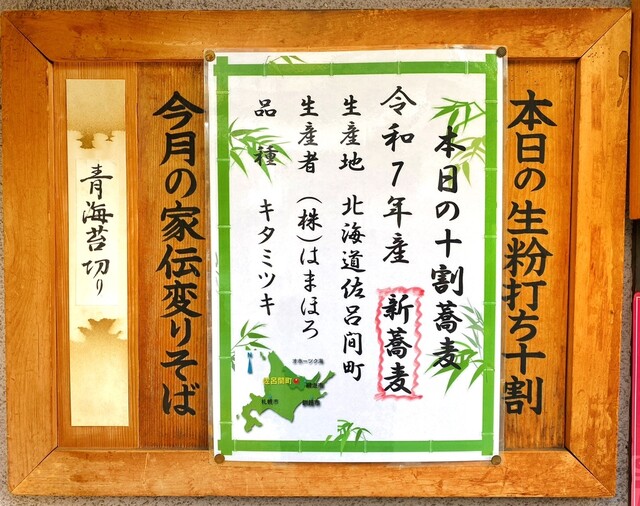 本日の生粉打ち十割
本日の十割蕎麦
令和7年産 新蕎麦
生産地 北海道佐呂間町
生産者 (株)はまほろ
品種 キタミツキ
オホーツク海
佐呂間町
札幌市
今月の家伝変りそば
青海苔切り